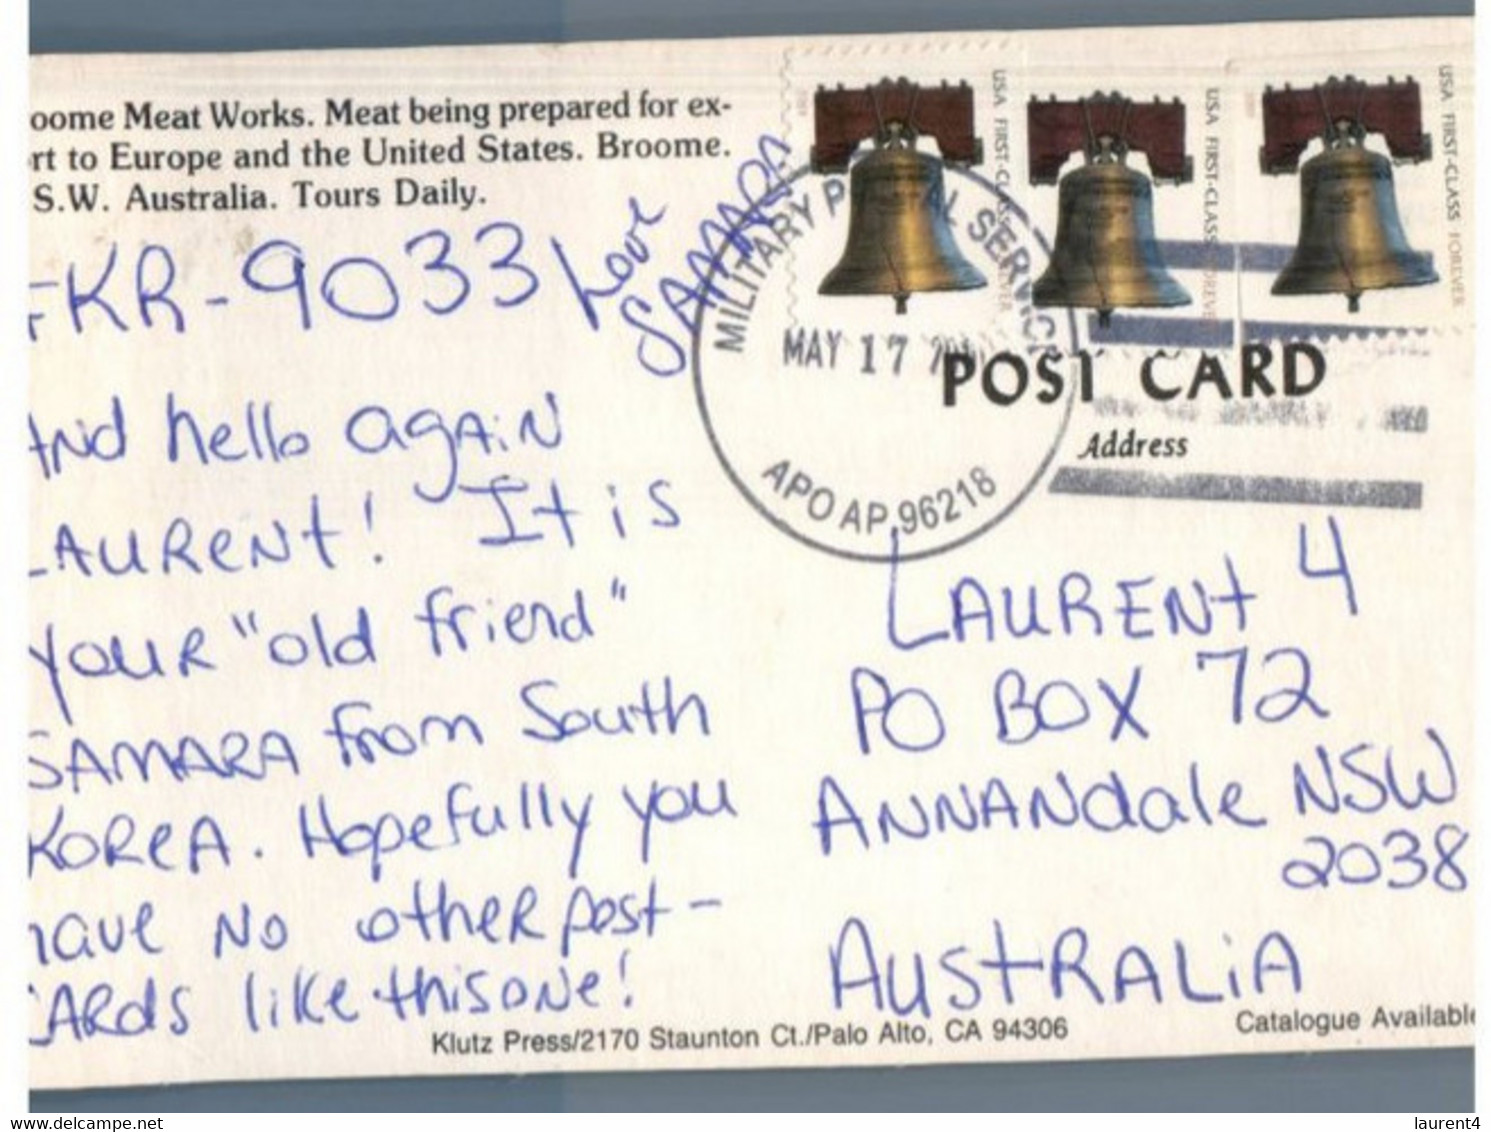 oome Meat Works. Meat being prepared for ex-
rt to Europe and the United States. Broome.
S.W. Australia. Tours Daily.
FKR-9033
Love
SAMARA
And hello again
LAURENt! It is
your "old friend"
SAMARA from South
KOReA. Hopefully you
have No other post-
CARds like this one!
USA FIRST-CLASS FOREVER
USA FIRST-CLASS FOREVER
USA FIRST-CLASS FOREVER
MILITARY POSTAL SERVICE
MAY 17
APO AP 96218
POST CARD
Address
LAURENt 4
PO BOX 72
ANNANdale NSW
2038
AUStRALiA
Klutz Press/2170 Staunton Ct./Palo Alto, CA 94306
Catalogue Available
laurent4